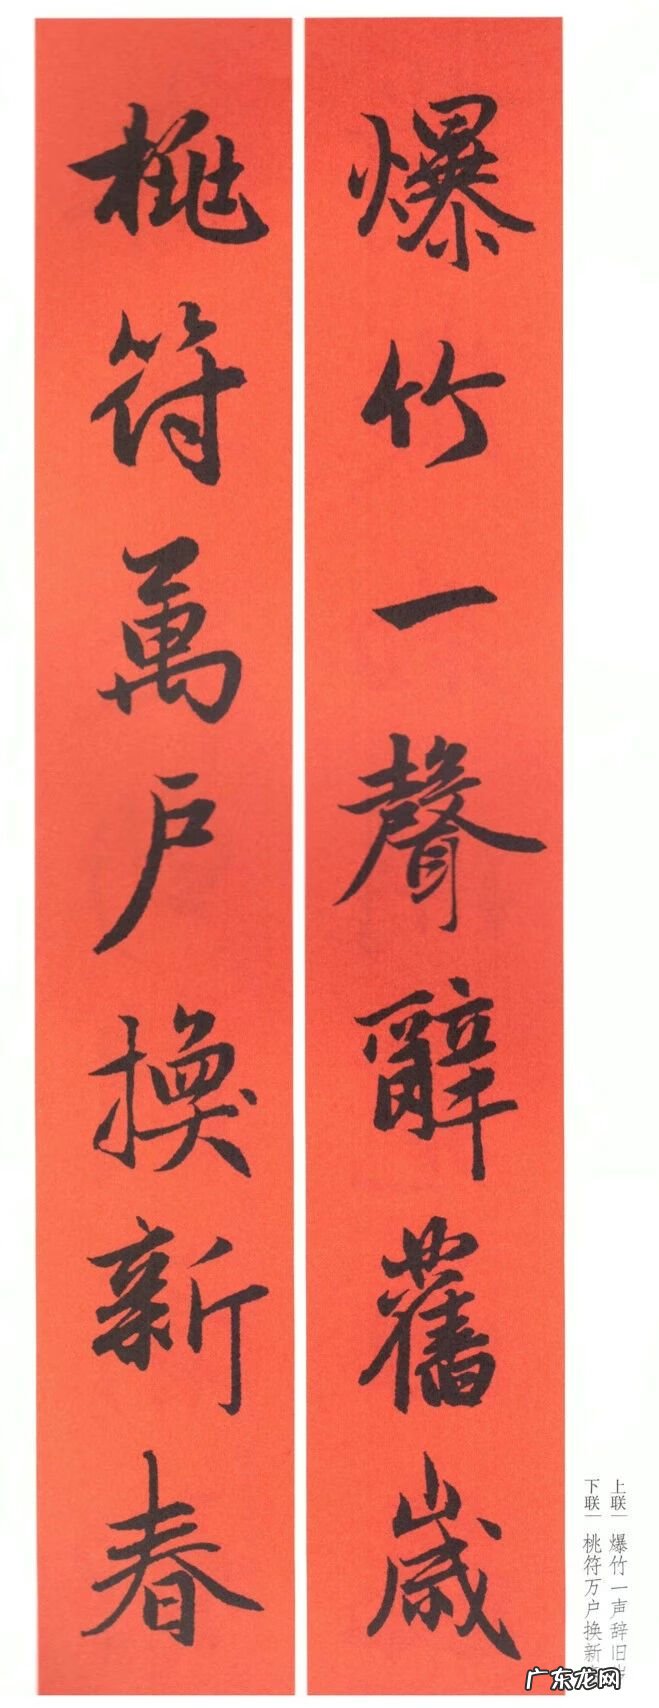 爆竹一聲辭舊歲
桃符萬户換新春
上联｜爆竹一声辞旧岁
下联｜桃符万户换新
广东龙网